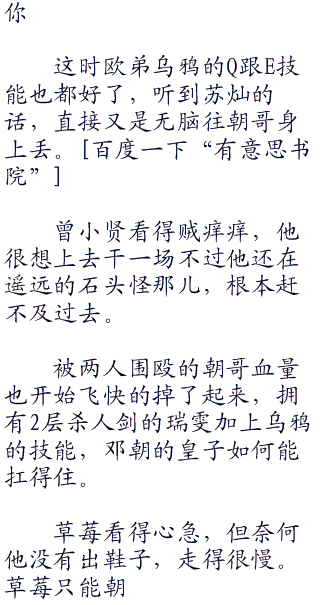 你
这时欧弟乌鸦的Q跟E技
能也都好了，听到苏灿的
话，直接又是无脑往朝哥身
上丢。[百度一下“有意思书
院”]
曾小贤看得贼痒痒，他
很想上去干一场不过他还在
遥远的石头怪那儿，根本赶
不及过去。
被两人围殴的朝哥血量
也开始飞快的掉了起来，拥
有2层杀人剑的瑞雯加上乌鸦
的技能，邓朝的皇子如何能
扛得住。
草莓看得心急，但奈何
他没有出鞋子，走得很慢。
草莓只能朝